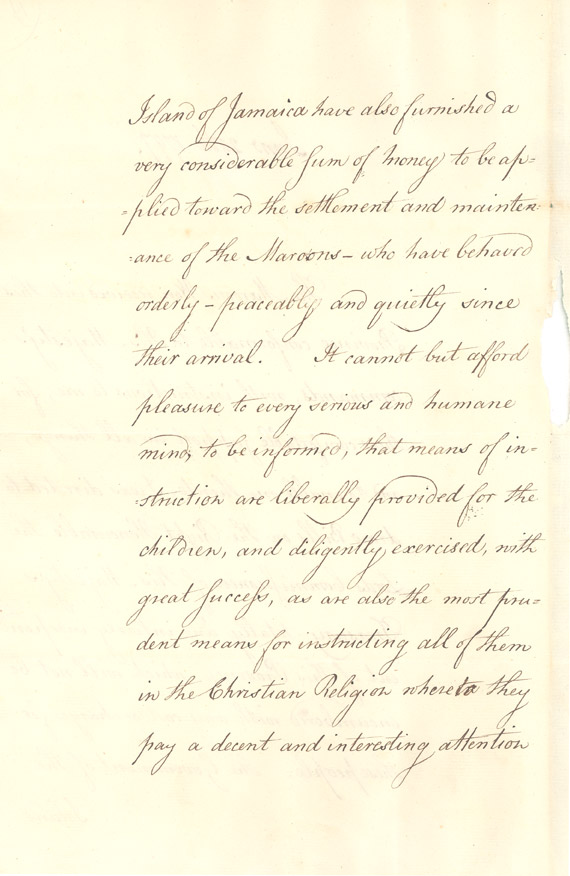 Island of Jamaica have also furnished a
very considerable sum of money to be ap=
=plied toward the settlement and mainten=
=ance of the Maroons – who have behaved
orderly – peaceably and quietly since
their arrival. It cannot but afford
pleasure to every serious and humane
mind, to be informed, that means of in=
=struction are liberally provided for the
children, and diligently exercised, with
great success, as are also the most pru=
dent means for instructing all of them
in the Christian Religion whereto they
pay a decent and interesting attention